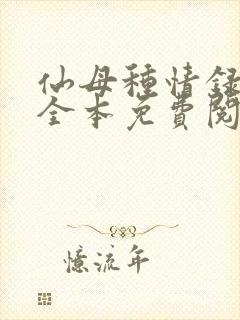 仙母種情録
全本免費閱
憶流年